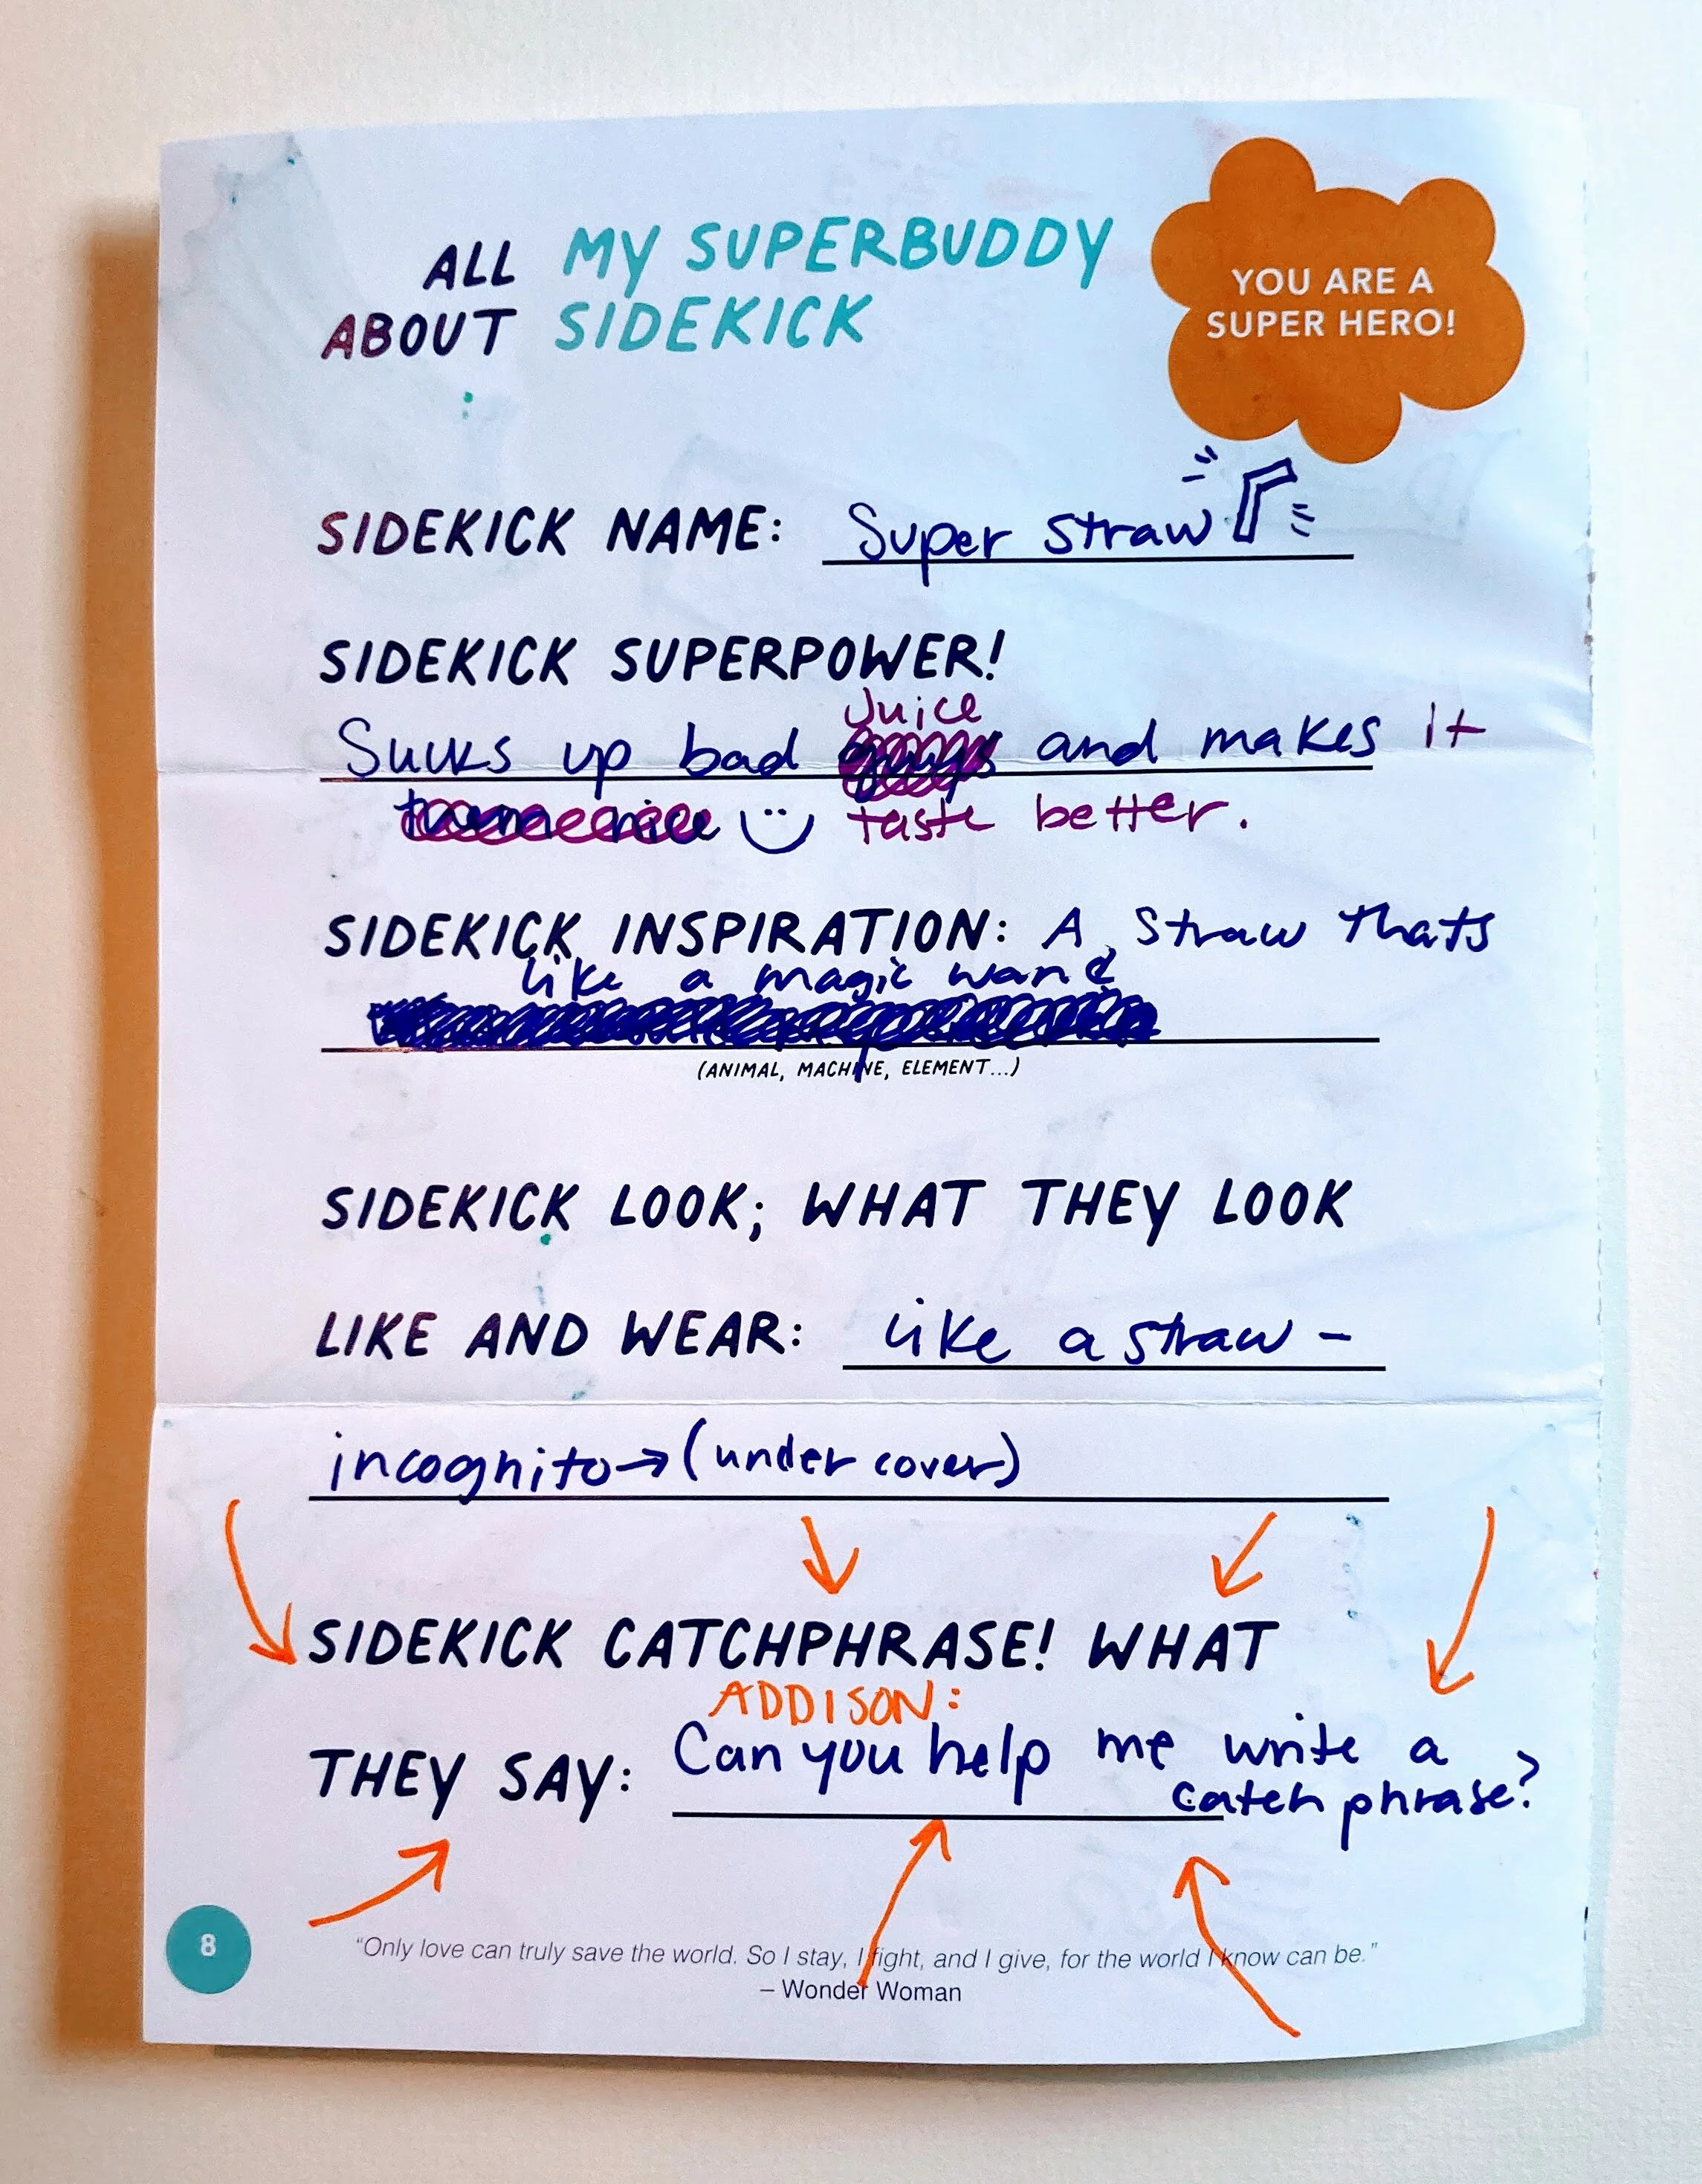 ALL MY SUPERBUDDY
ABOUT SIDEKICK
YOU ARE A
SUPER HERO!
SIDEKICK NAME: Super Straw
SIDEKICK SUPERPOWER!
Juice
Sucks up bad guys and makes it
them nice taste better.
SIDEKICK INSPIRATION: A Straw thats
like a magic wand
(ANIMAL, MACHINE, ELEMENT...)
SIDEKICK LOOK; WHAT THEY LOOK
LIKE AND WEAR: like a straw -
incognito → (under cover)
SIDEKICK CATCHPHRASE! WHAT
ADDISON:
THEY SAY: Can you help me write a
catch phrase?
8
"Only love can truly save the world. So I stay, I fight, and I give, for the world I know can be."
– Wonder Woman